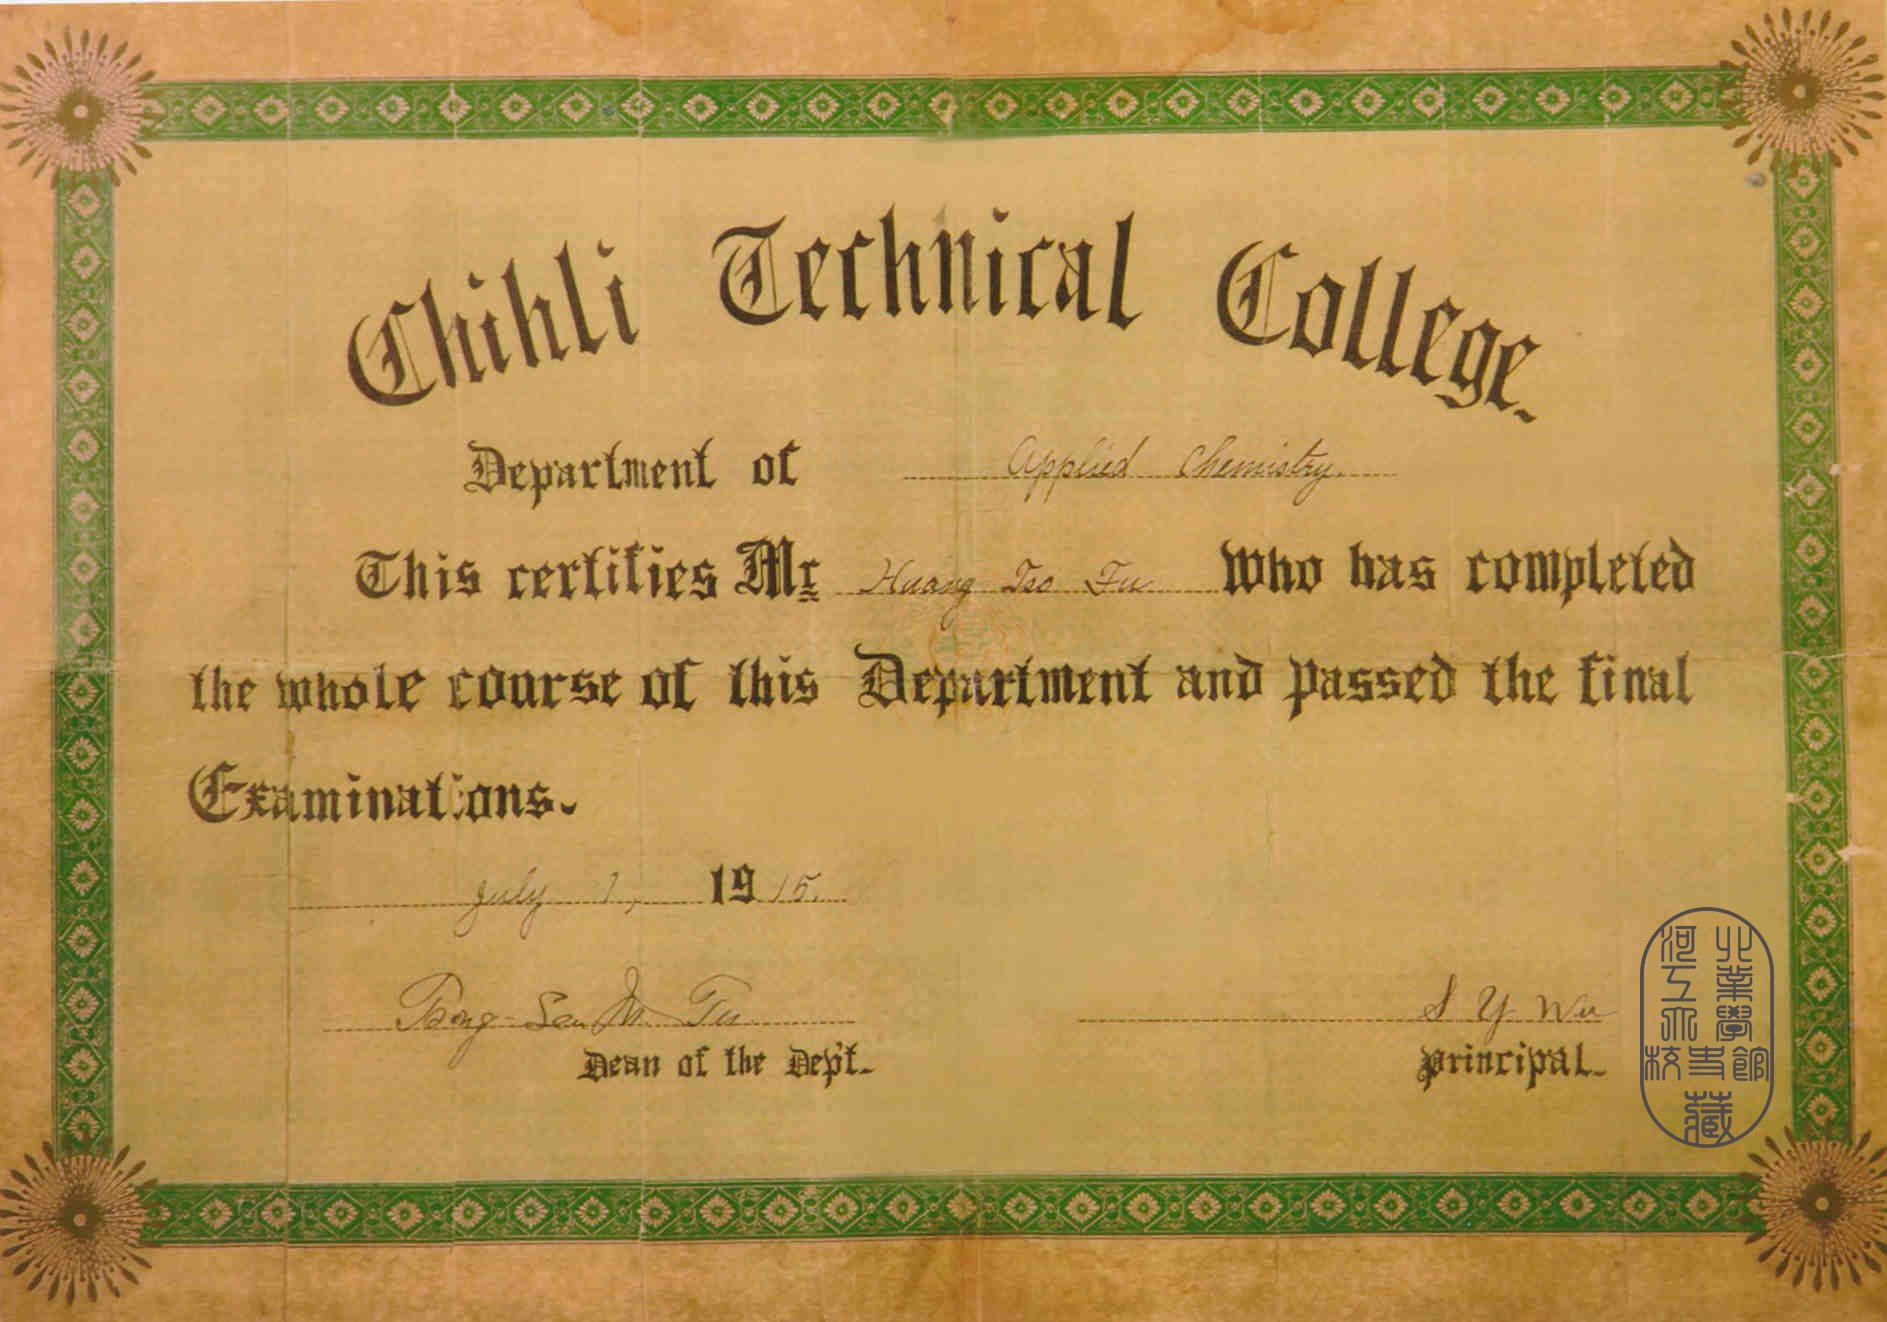 Chihli Technical College.
Department of Applied Chemistry.
This certifies Mr Huang Tso Fu who has completed
the whole course of this Department and passed the final
Examinations.
July 1, 1915.
S Y Wu
Dean of the Dep't.
Principal.
河北
工業
大學
校史館
藏